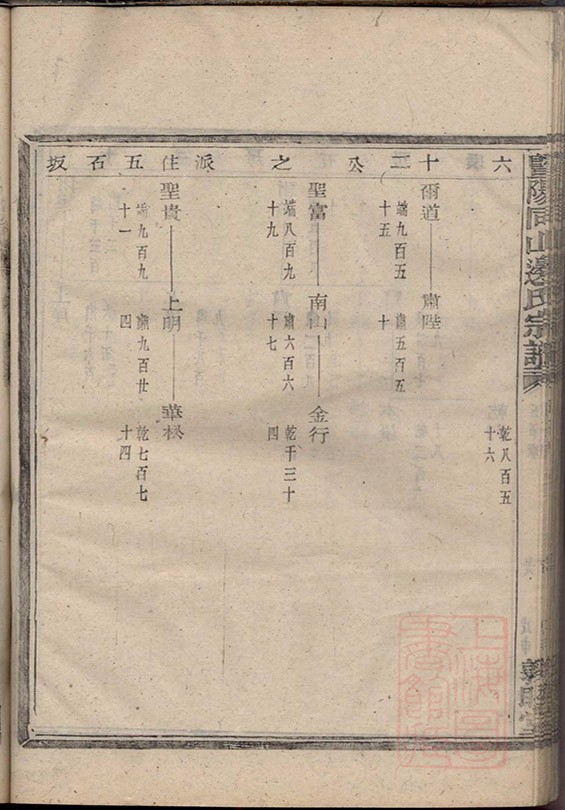 暨陽同山邊氏宗譜
六十三公之派住五石坂
乾八百五十六
爾道 肅陸
端九百五十五
肅五百五十
聖富 南山 金行
端八百九十九
肅六百六十七
乾千三十四
聖貴 上明 華松
端九百九十一
肅九百廿四
乾七百七十四
上海圖書館藏